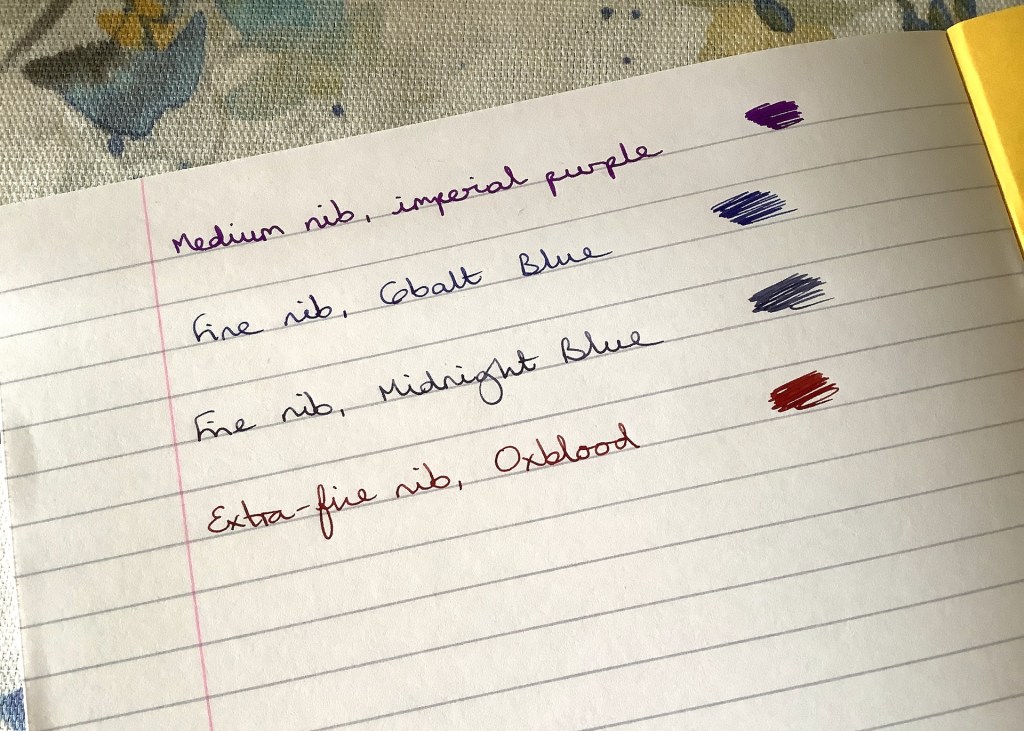 Medium nib, imperial purple
Fine nib, Cobalt Blue
Fine nib, Midnight Blue
Extra-fine nib, Oxblood